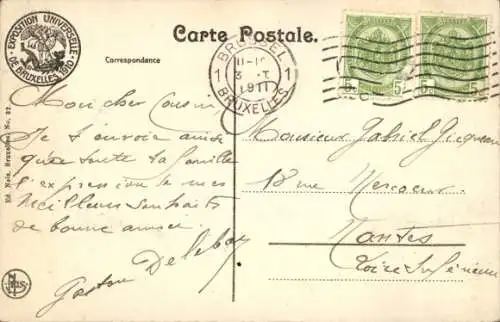 EXPOSITION UNIVERSELLE
DE BRUXELLES 1910
Carte Postale.
Correspondance
BRUSSEL
1 1
1911
BRUXELLES
5 5c
5 5c
Mon cher Cousin
Je t'envoie ainsi
que toute la famille
l'expression de mes
meilleurs souhaits
de bonne année
Gaston
Monsieur Gabriel
18 rue Mercœur
Nantes
Loire Inférieure
Ed. Nels, Bruxelles